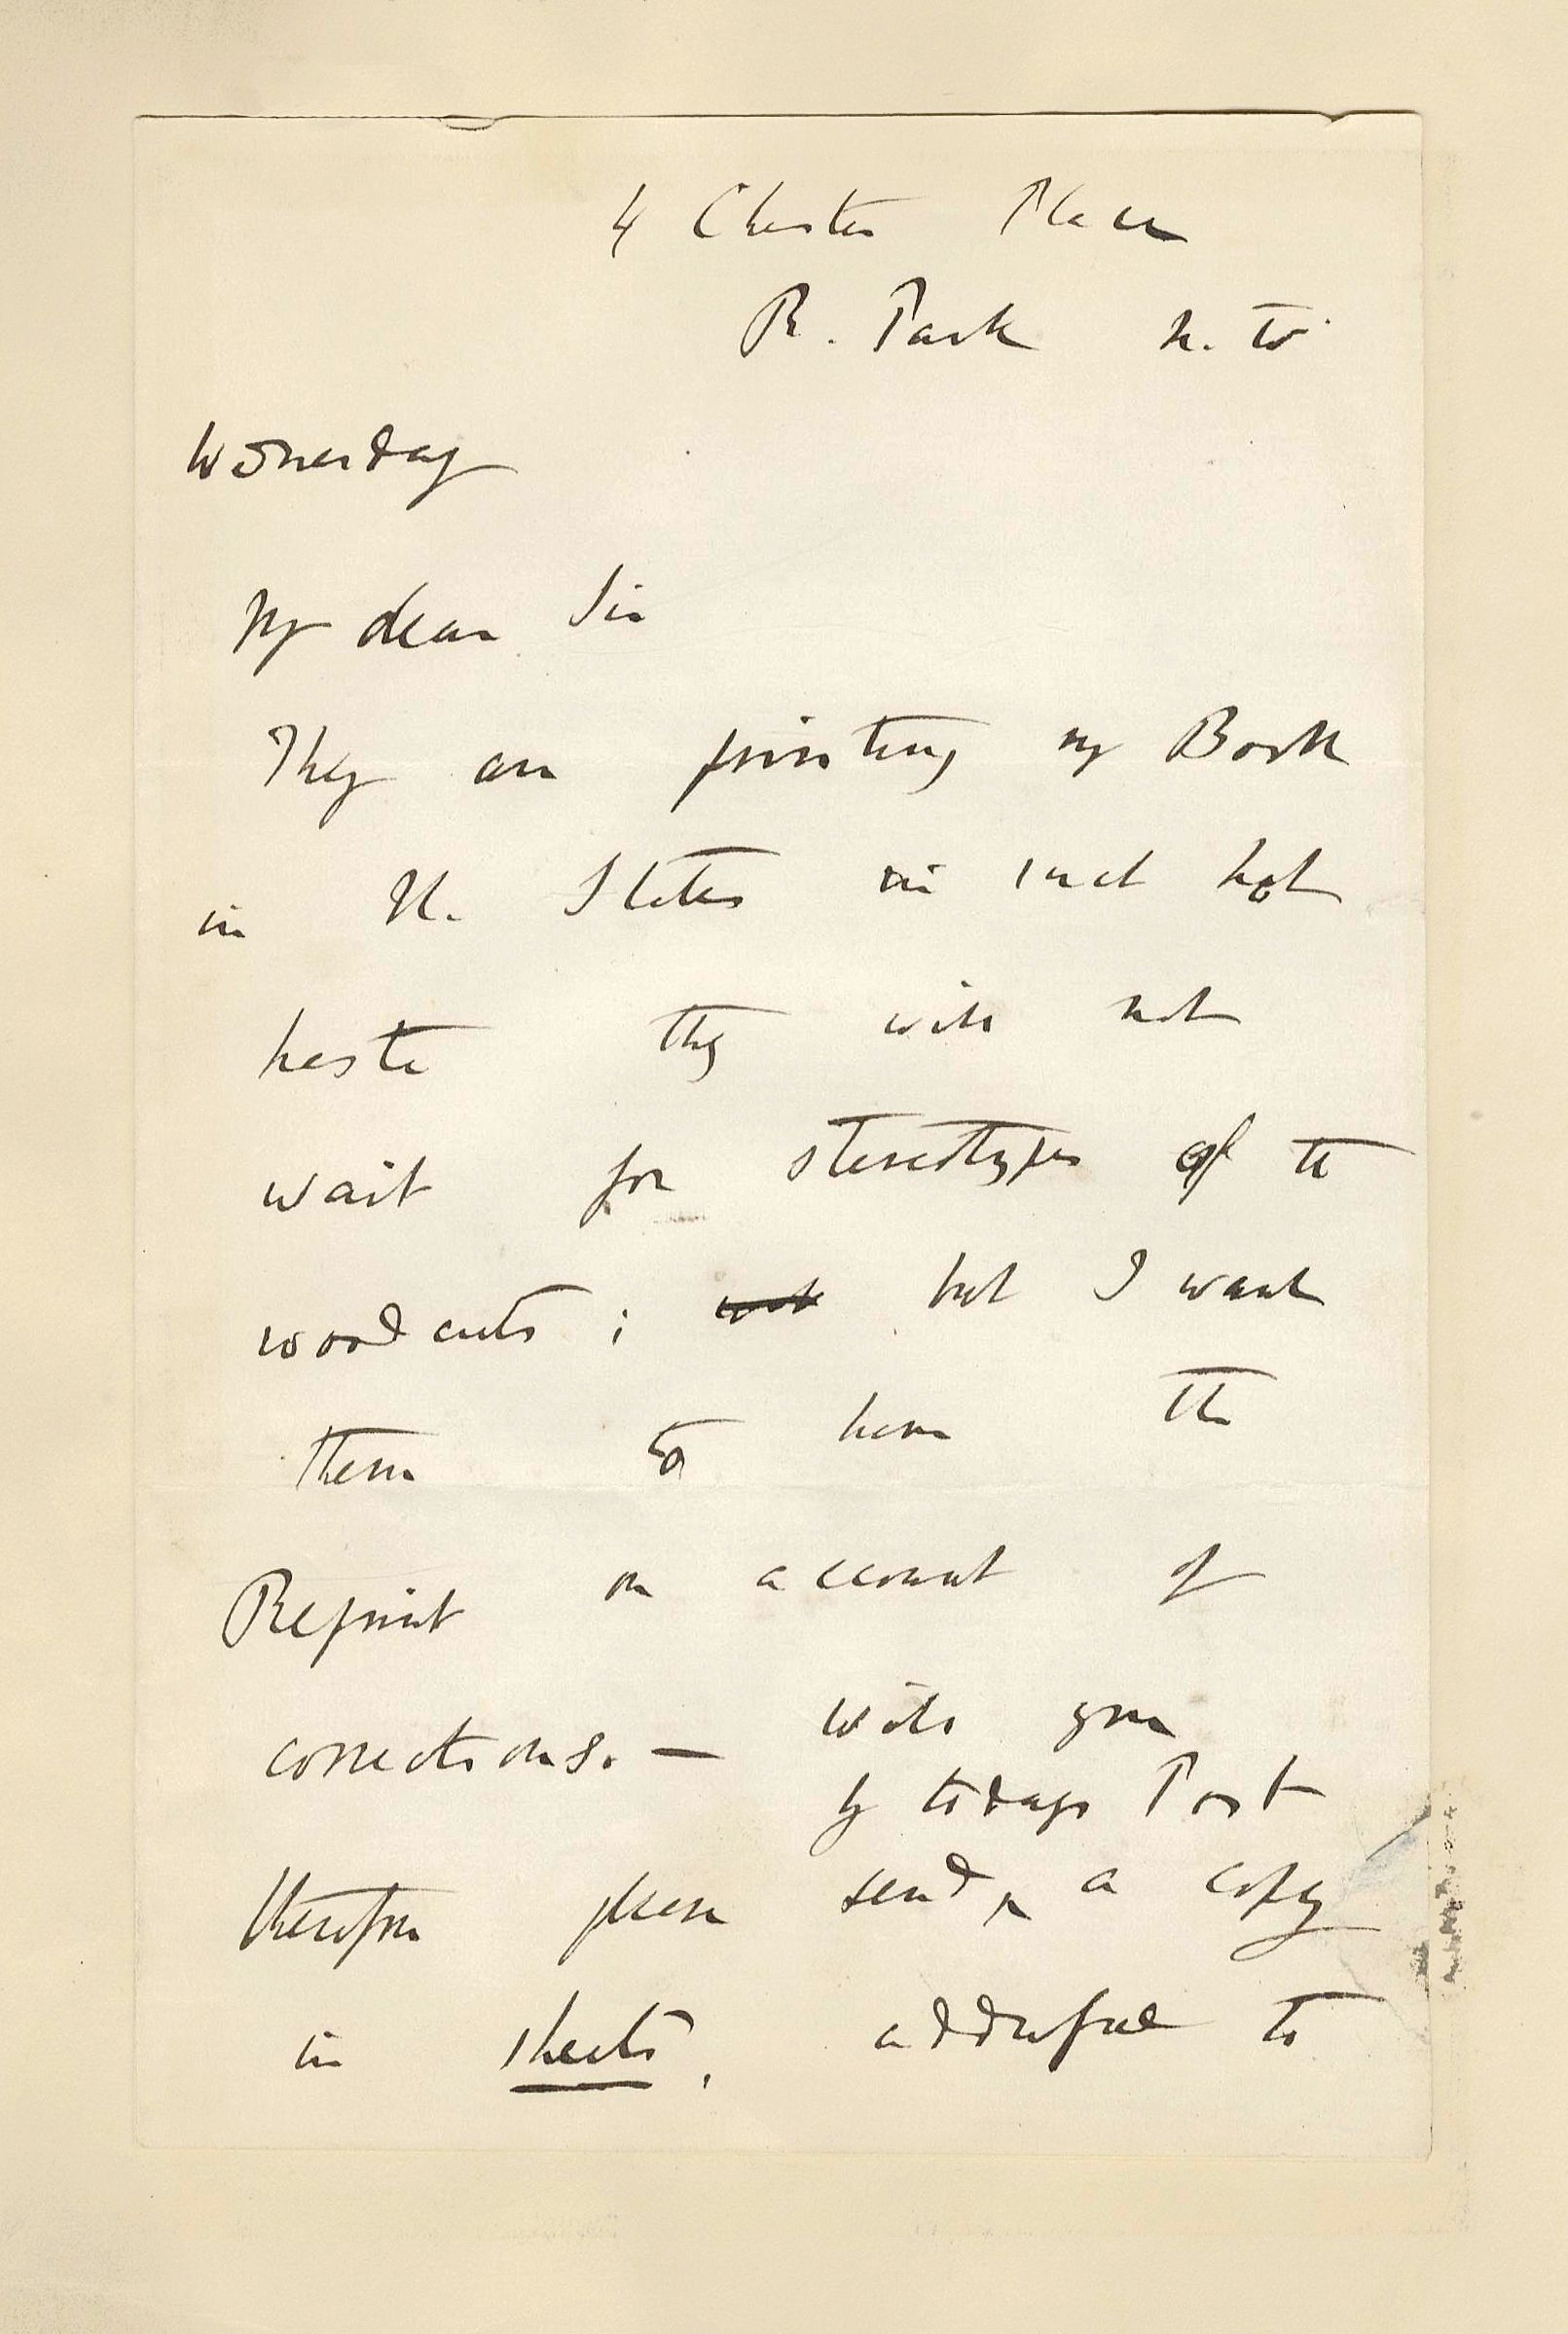 4 Chester Place
R. Park N.W.
Wednesday
My dear Sir
They are printing my Book
in the States in such hot
haste they will not
wait for stereotypes of the
woodcuts; but I want
them to have the
Reprint on account of
corrections. — will you
by todays Post
therefore please send, a copy
in sheets, addressed to